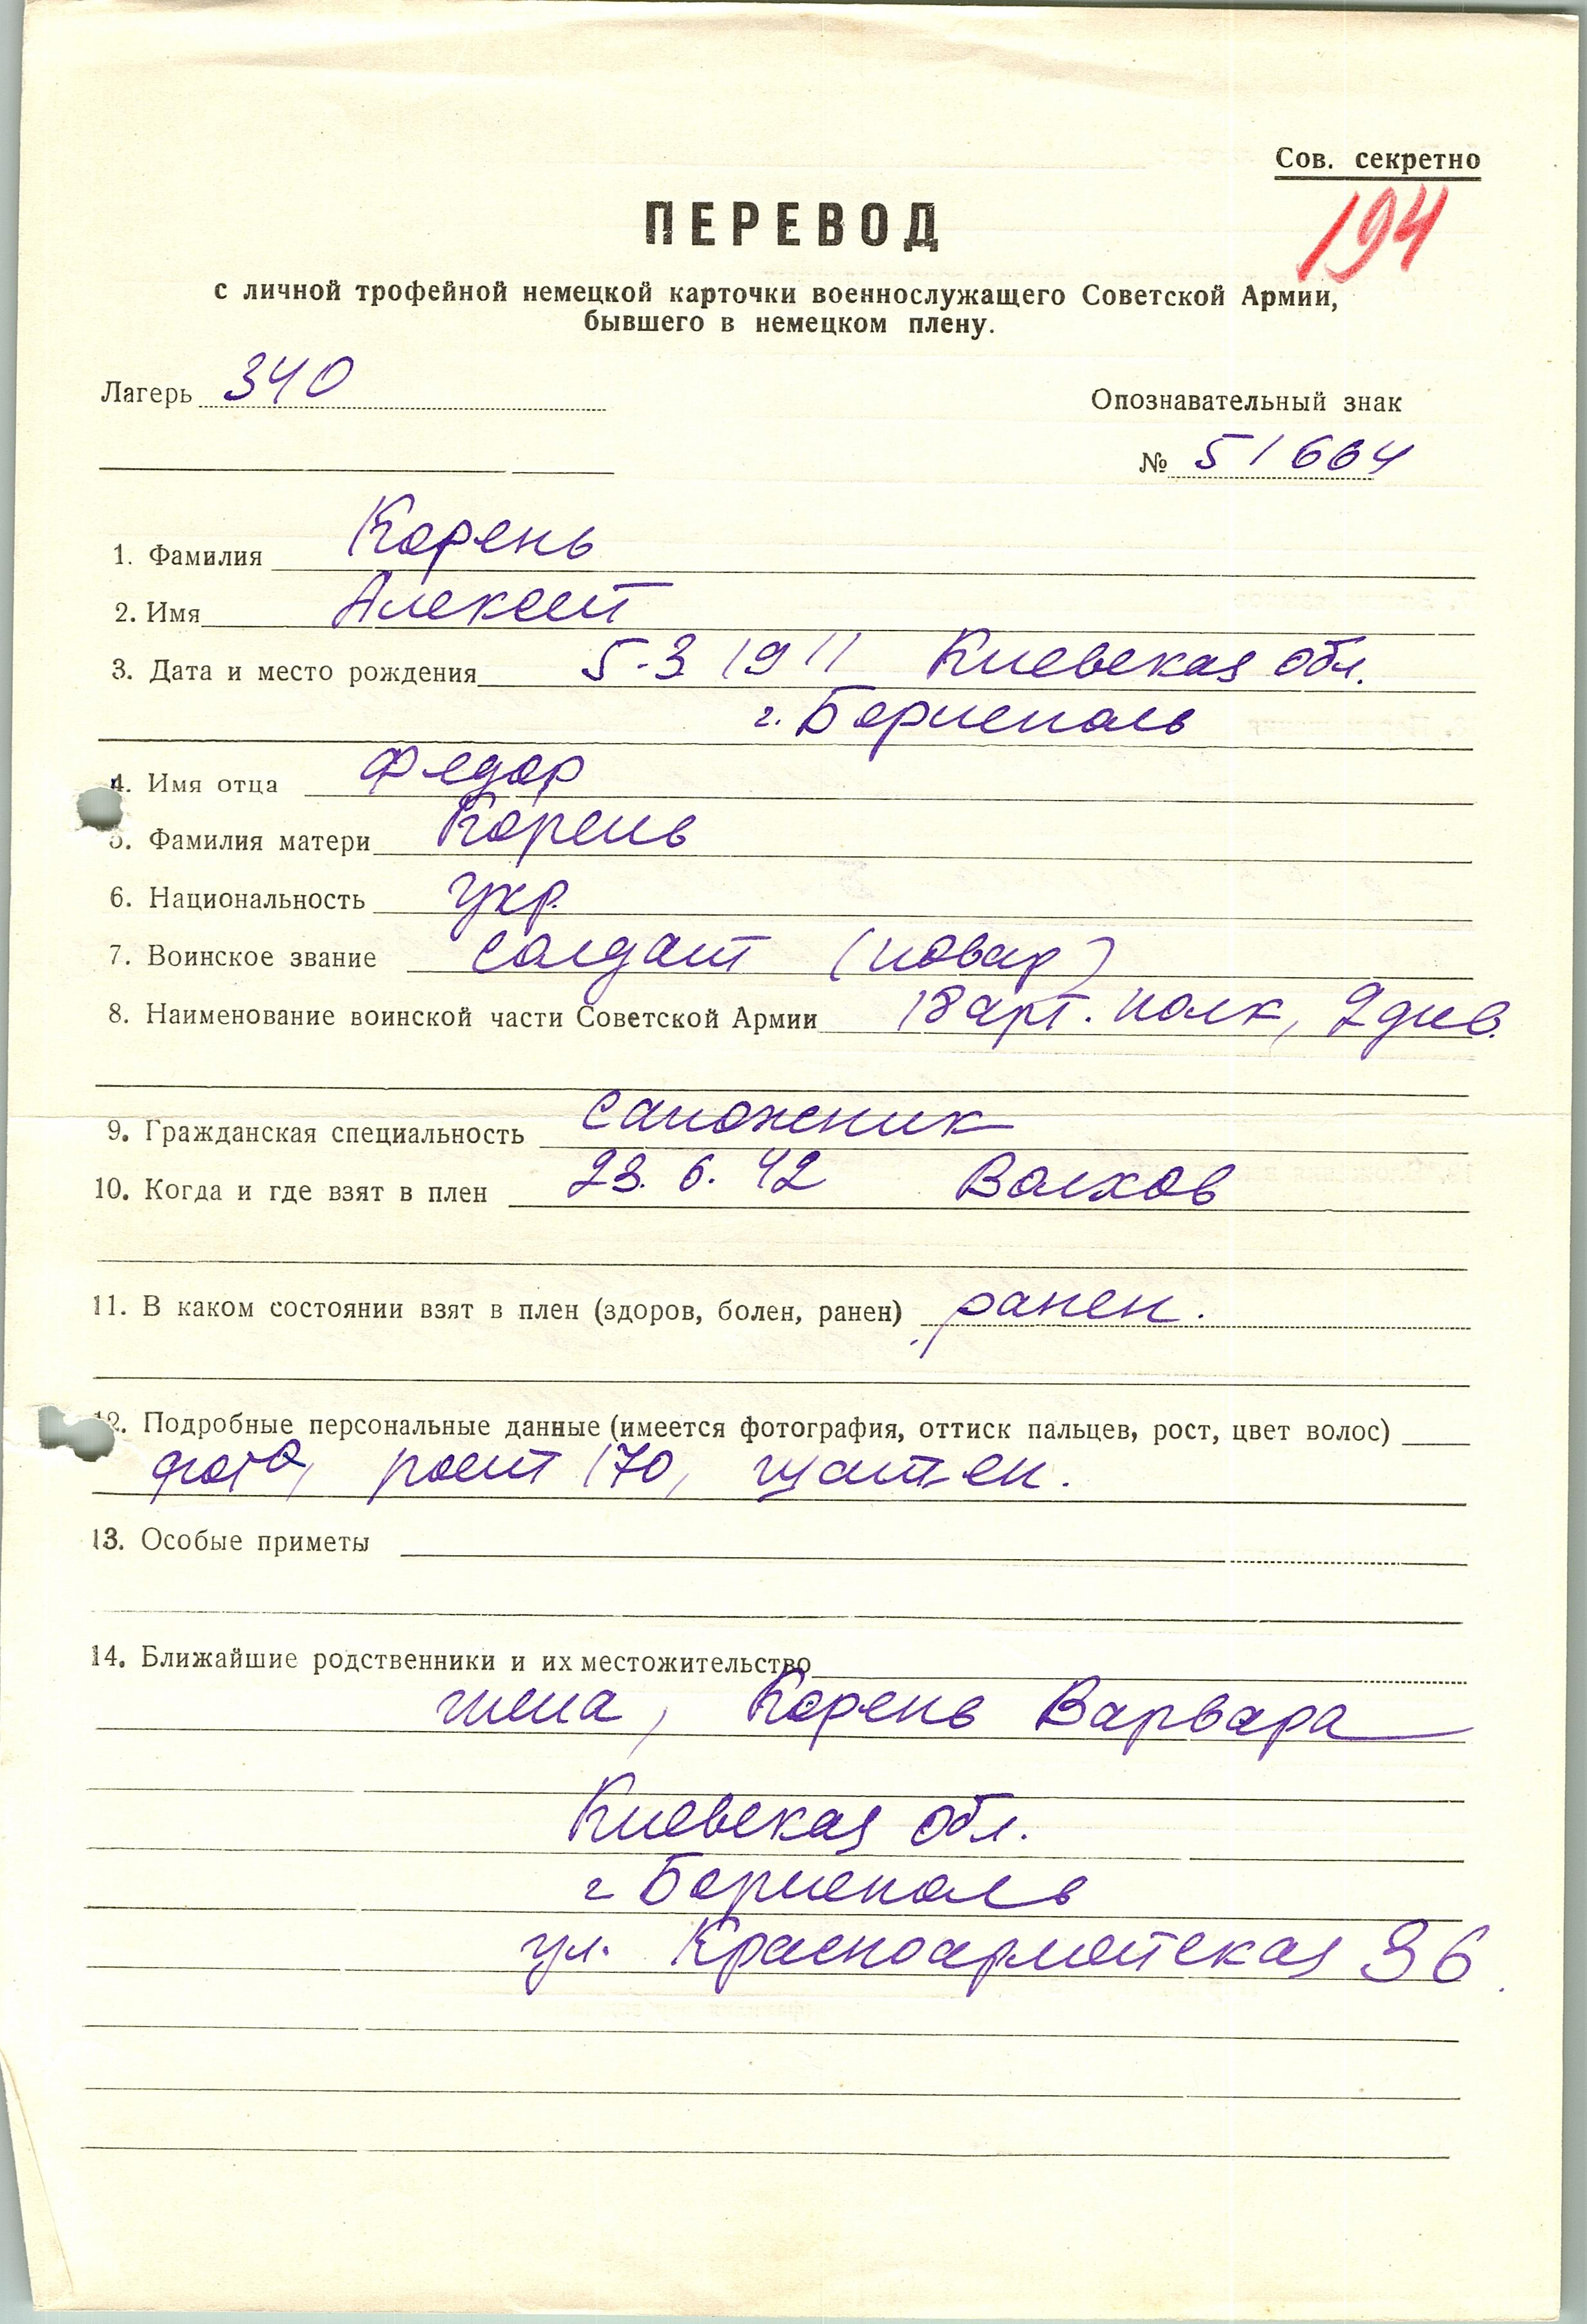 Сов. секретно
194
ПЕРЕВОД
с личной трофейной немецкой карточки военнослужащего Советской Армии,
бывшего в немецком плену.
Лагерь 340
Опознавательный знак
№ 51664
1. Фамилия Корень
2. Имя Алексей
3. Дата и место рождения 5.3 1911 Киевская обл.
г. Борисполь
4. Имя отца Федор
5. Фамилия матери Корень
6. Национальность укр.
7. Воинское звание солдат (повар)
8. Наименование воинской части Советской Армии 18 арт. полк, 2 див.
9. Гражданская специальность сапожник
10. Когда и где взят в плен 23.6.42 Волхов
11. В каком состоянии взят в плен (здоров, болен, ранен) ранен.
12. Подробные персональные данные (имеется фотография, оттиск пальцев, рост, цвет волос)
фото, рост 170, шатен.
13. Особые приметы
14. Ближайшие родственники и их местожительство
жена, Корень Варвара
Киевская обл.
г Борисполь
ул. Красноармейская 36